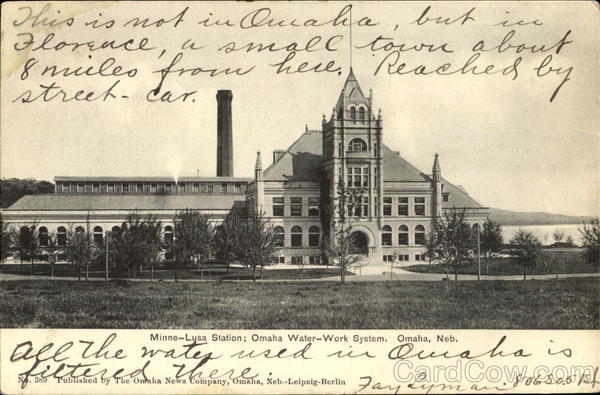 This is not in Omaha, but in
Florence, a small town about
8 miles from here. Reached by
street-car.
Minne-Lusa Station; Omaha Water-Work System. Omaha, Neb.
All the water used in Omaha is
filtered there.
No. 389 Published by The Omaha News Company, Omaha, Neb.-Leipzig-Berlin
Fay Lyman 806 So. 51 St.
CardCow.com